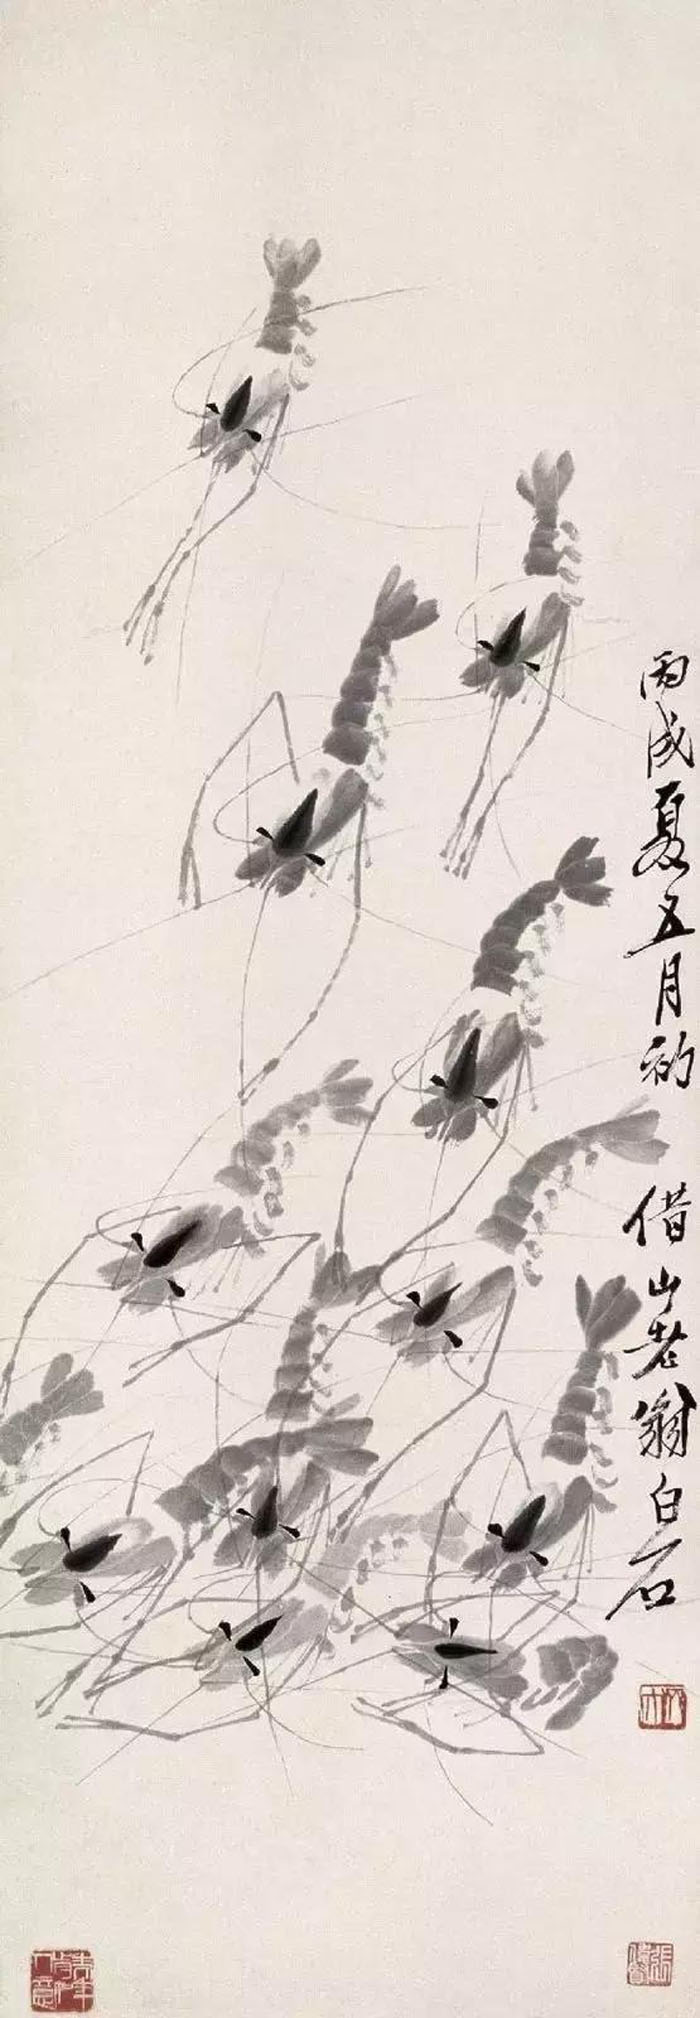 丙戌夏五月初
借山老翁白石